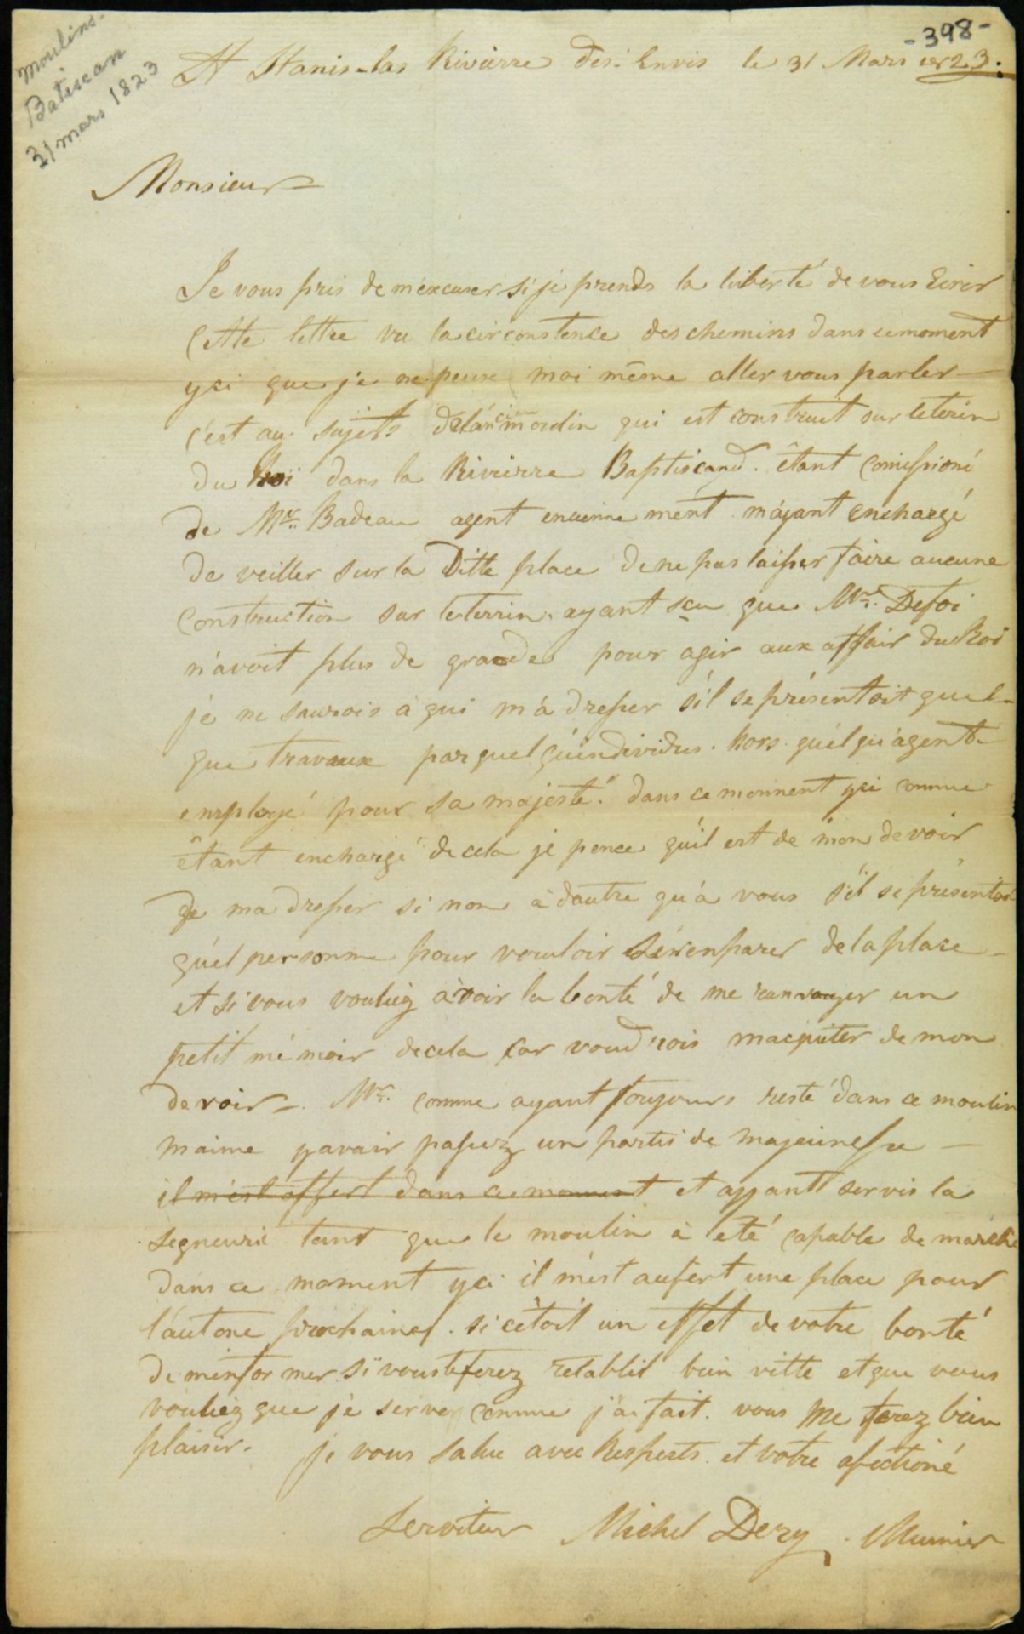 -398-
Moulins-
Batiscan
31 mars 1823
St Stanis-las Rivierre des Envis le 31 Mars 1823.
Monsieur
Je vous pris de m'excuser si je prends la liberté de vous Ecrir
Cette lettre vu la circonstence des chemins dans ce moment
yci que je ne peux moi même aller vous parler
c'est au sujets de láncien moulin qui est construit sur le terin
du Roi dans la Rivierre Baptiscand. êtant comissioné
de Mr. Badeau agent encienne mént máyant enchargé
de veiller sur la Ditte place de ne pas laisser faire aucune
construction sur le terrin. ayant sçu que Mr. Defoi
n'avoit plus de grande pour agir aux affair du Roi
je ne saurois à qui m'à dresser s'il se présentoit quel-
que travaux par quel qúindividus. hors quélqu'agent
employé pour sa majesté. dans ce moment yci comme
êtant enchargé de cela je pence qúil est de mon devoir
de ma dresser si non à dautre qu'à vous s'il se présentoi
quél personne pour vouloir sérenparer de la place
et si vous vouliez àvoir la bonté de me ranvoyer un
petit mé moir de cela car voud rois macquiter de mon
devoir. Mr. comme ayant toujours resté dans ce moulin
maime y avair passez un partis de majeunesse
il m'est offert dans ce moment et ayyant servis la
segneurie tant que le moulin à été capable de marché
dans ce moment yci il m'est aufert une place pour
l'autone prochaine. si c'étoit un effet de votre bonté
de m'informer si vous le ferez rétablit bien vitte et que vous
vouliez que je serve comme j'ai fait. vous me ferez bien
plaisir. je vous salue avec Respects et votre afectioné
Serviteur Michel Dery. Munier